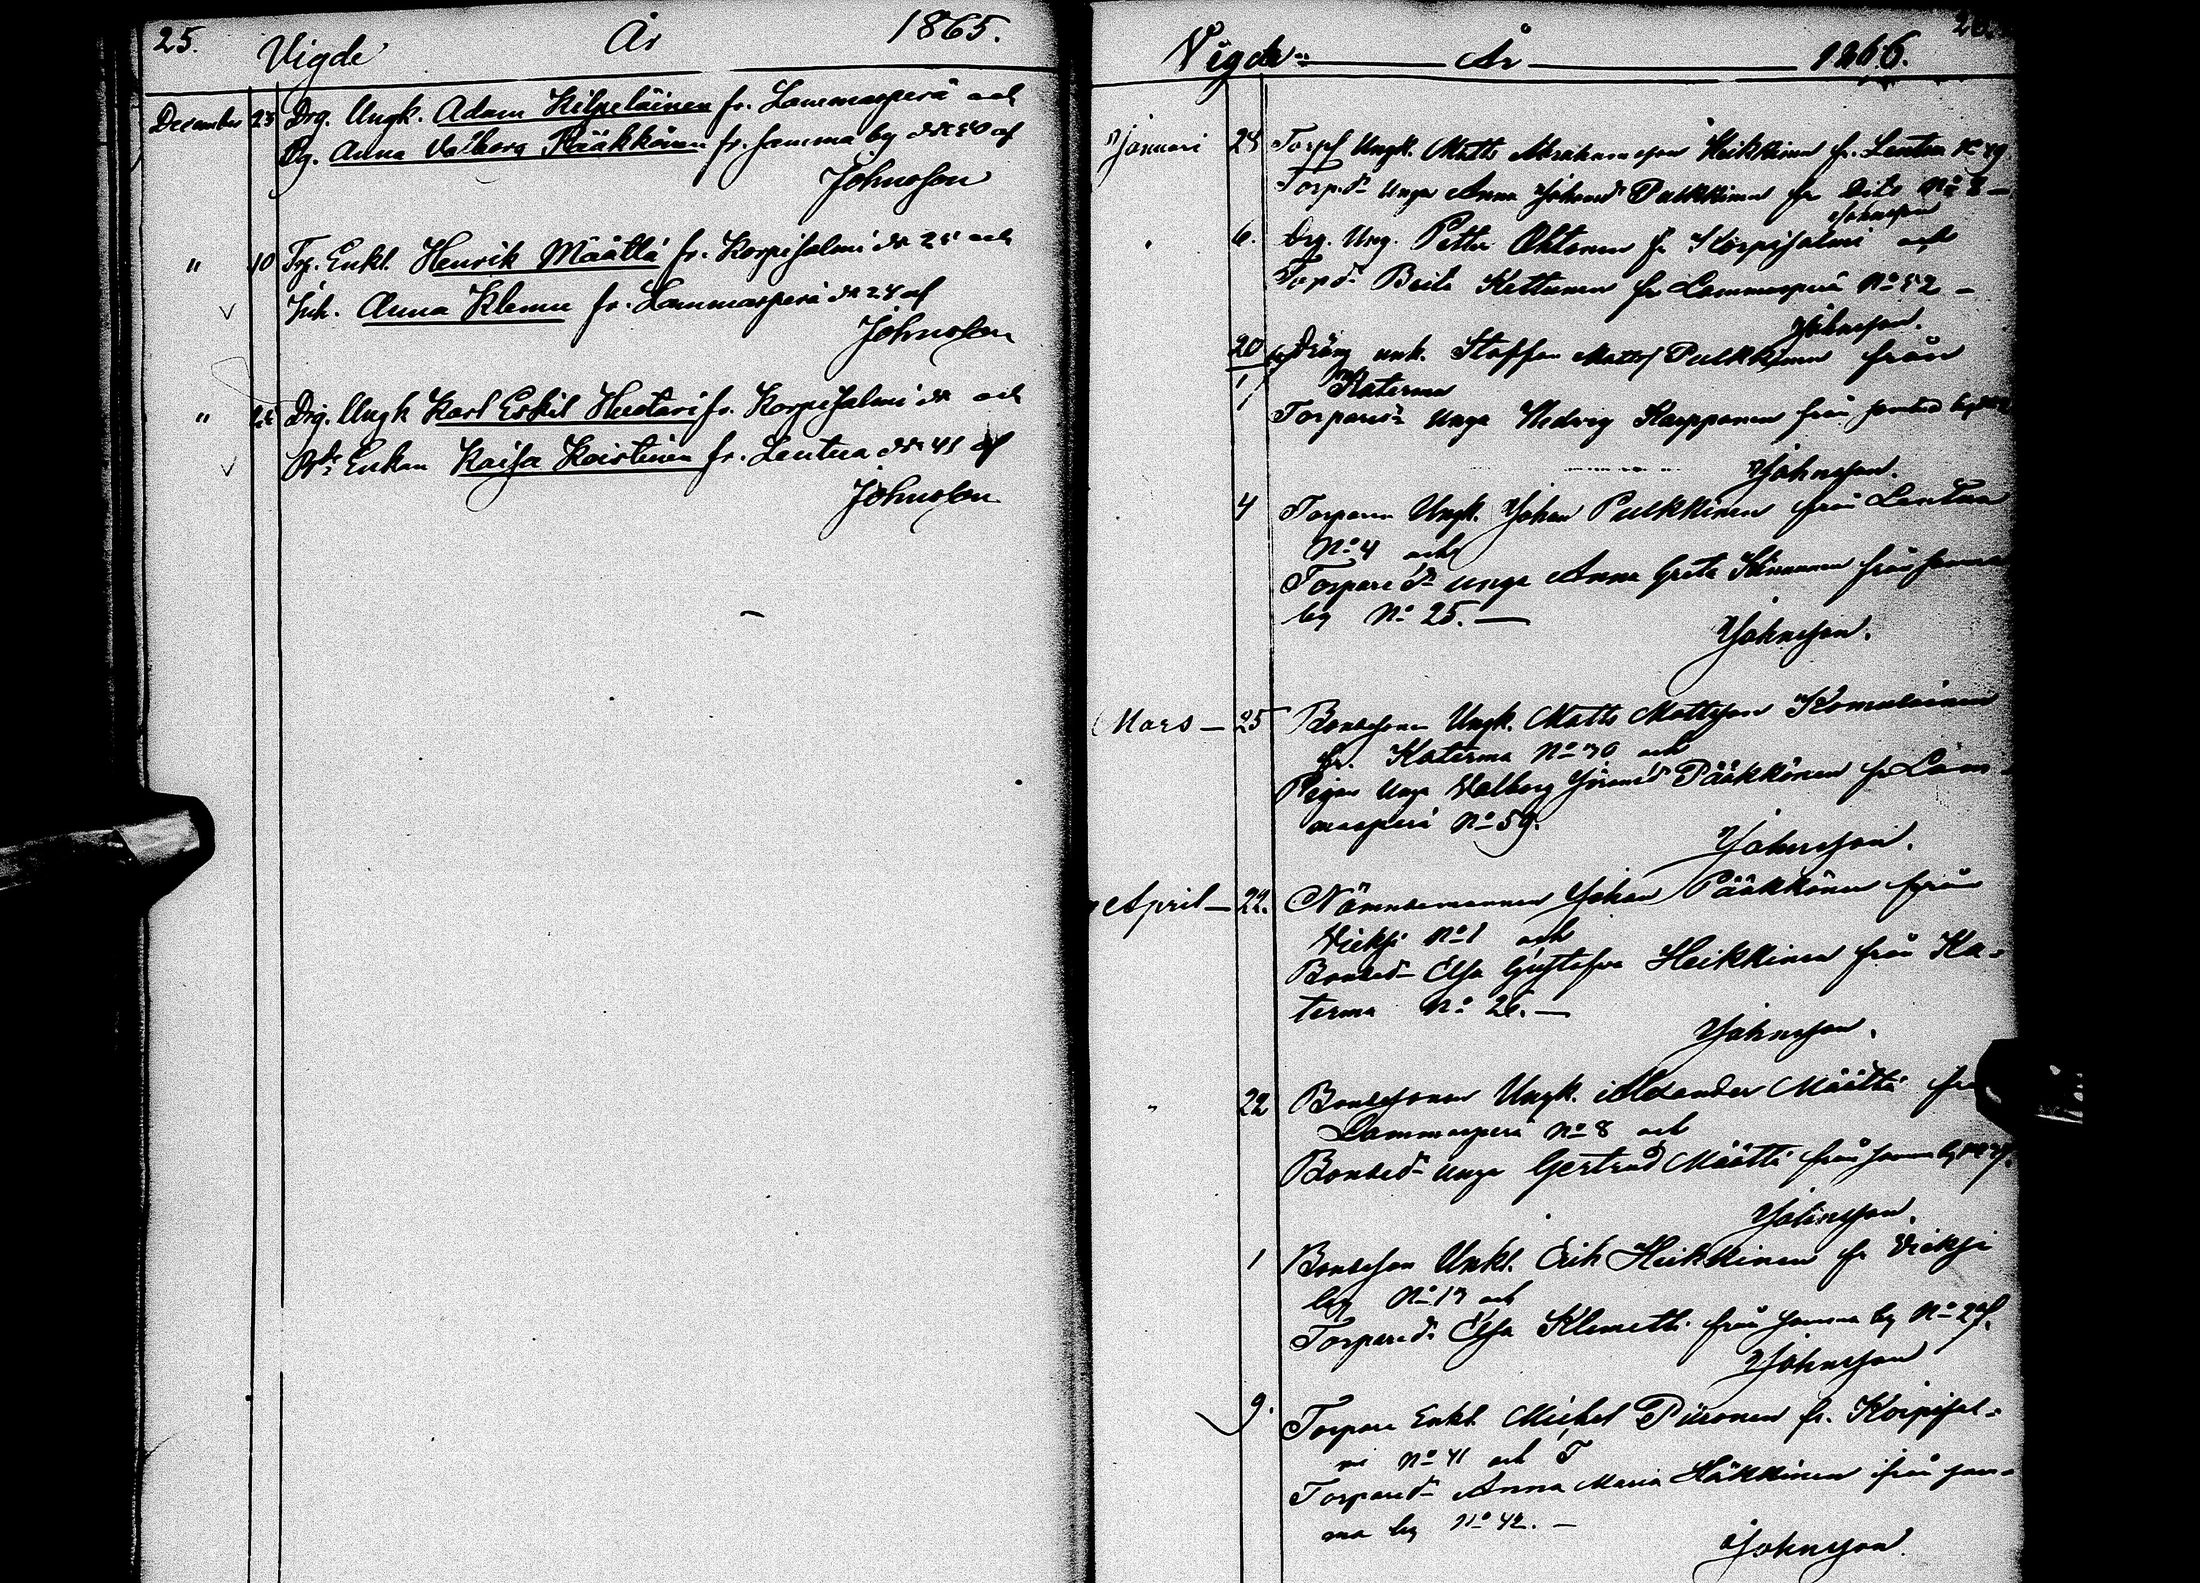 25. Vigde År 1865.
December 23 Drg. Ungk. Adam Kilpeläinen fr. Lammasperä och
Pg. Anna Valborg Pääkkönen fr. samma by № 50 af
Johnsson
" 10 Trp. Enkl. Henrik Määttä fr. Korpisalmi № 25 och
Inh. Anna Klemu fr. Lammasperä № 24 af
Johnsson
" Drg. Ungk Karl Eskil Huotari fr. Korpisalmi № och
Enkan Kaisa Koistinen fr. Lentua № 41 af
Johnsson
Vigde År 1866.
Januari 24 Torps Ungk. Matts Abrahamsson Heikkinen fr. Lentua № 49
Torp.dr Unga Anna Johansdr Pulkkinen fr Dito № 8 —
Johnsson
6. Drg. Ung. Petter Ohtonen fr Korpisalmi och
Torpdr Beata Kettunen fr Lammasperä № 52 —
Johnsson.
20/1 Dräng unk. Staffan Matts Pulkkinen från
Katerma
Torparedr Unga Hedvig Karppanen från samma by
Johnsson.
4 Torparen Ungk. Johan Pulkkinen från Lentua
№ 4 och
Torparedr unga Anna Greta från samma
by № 25. —
Johnsson.
Mars — 25 Bondesonen Ungk. Matts Mattsson Komulainen
fr. Katerma № 30 och
Pigan Unga Valborg Göransdr Pääkkönen fr Lam-
masperä № 59.
Johnsson.
April — 22. Nämndemannen Johan Pääkkönen från
Vieksi № 1 och
Bondedr Elsa Gustafva Heikkinen från Ka-
terma № 26. —
Johnsson.
" 22 Bondesonen Ungk. Alexander Määttä från
Lammasperä № 8 och
Bondedr Unga Gertrud Määttä från samma by
Johnsson.
1 Bondeson Unkl. Erik Heikkinen fr Vieksi
by № 13 och
Torparedr Elsa Klemetti från samma by № 27.
Johnsson
9. Torpare Enkl. Michel Piironen fr. Korpisal-
mi № 41 och T
Torparedr Anna Maria Häkkinen från sam-
ma by № 42. —
Johnsson.